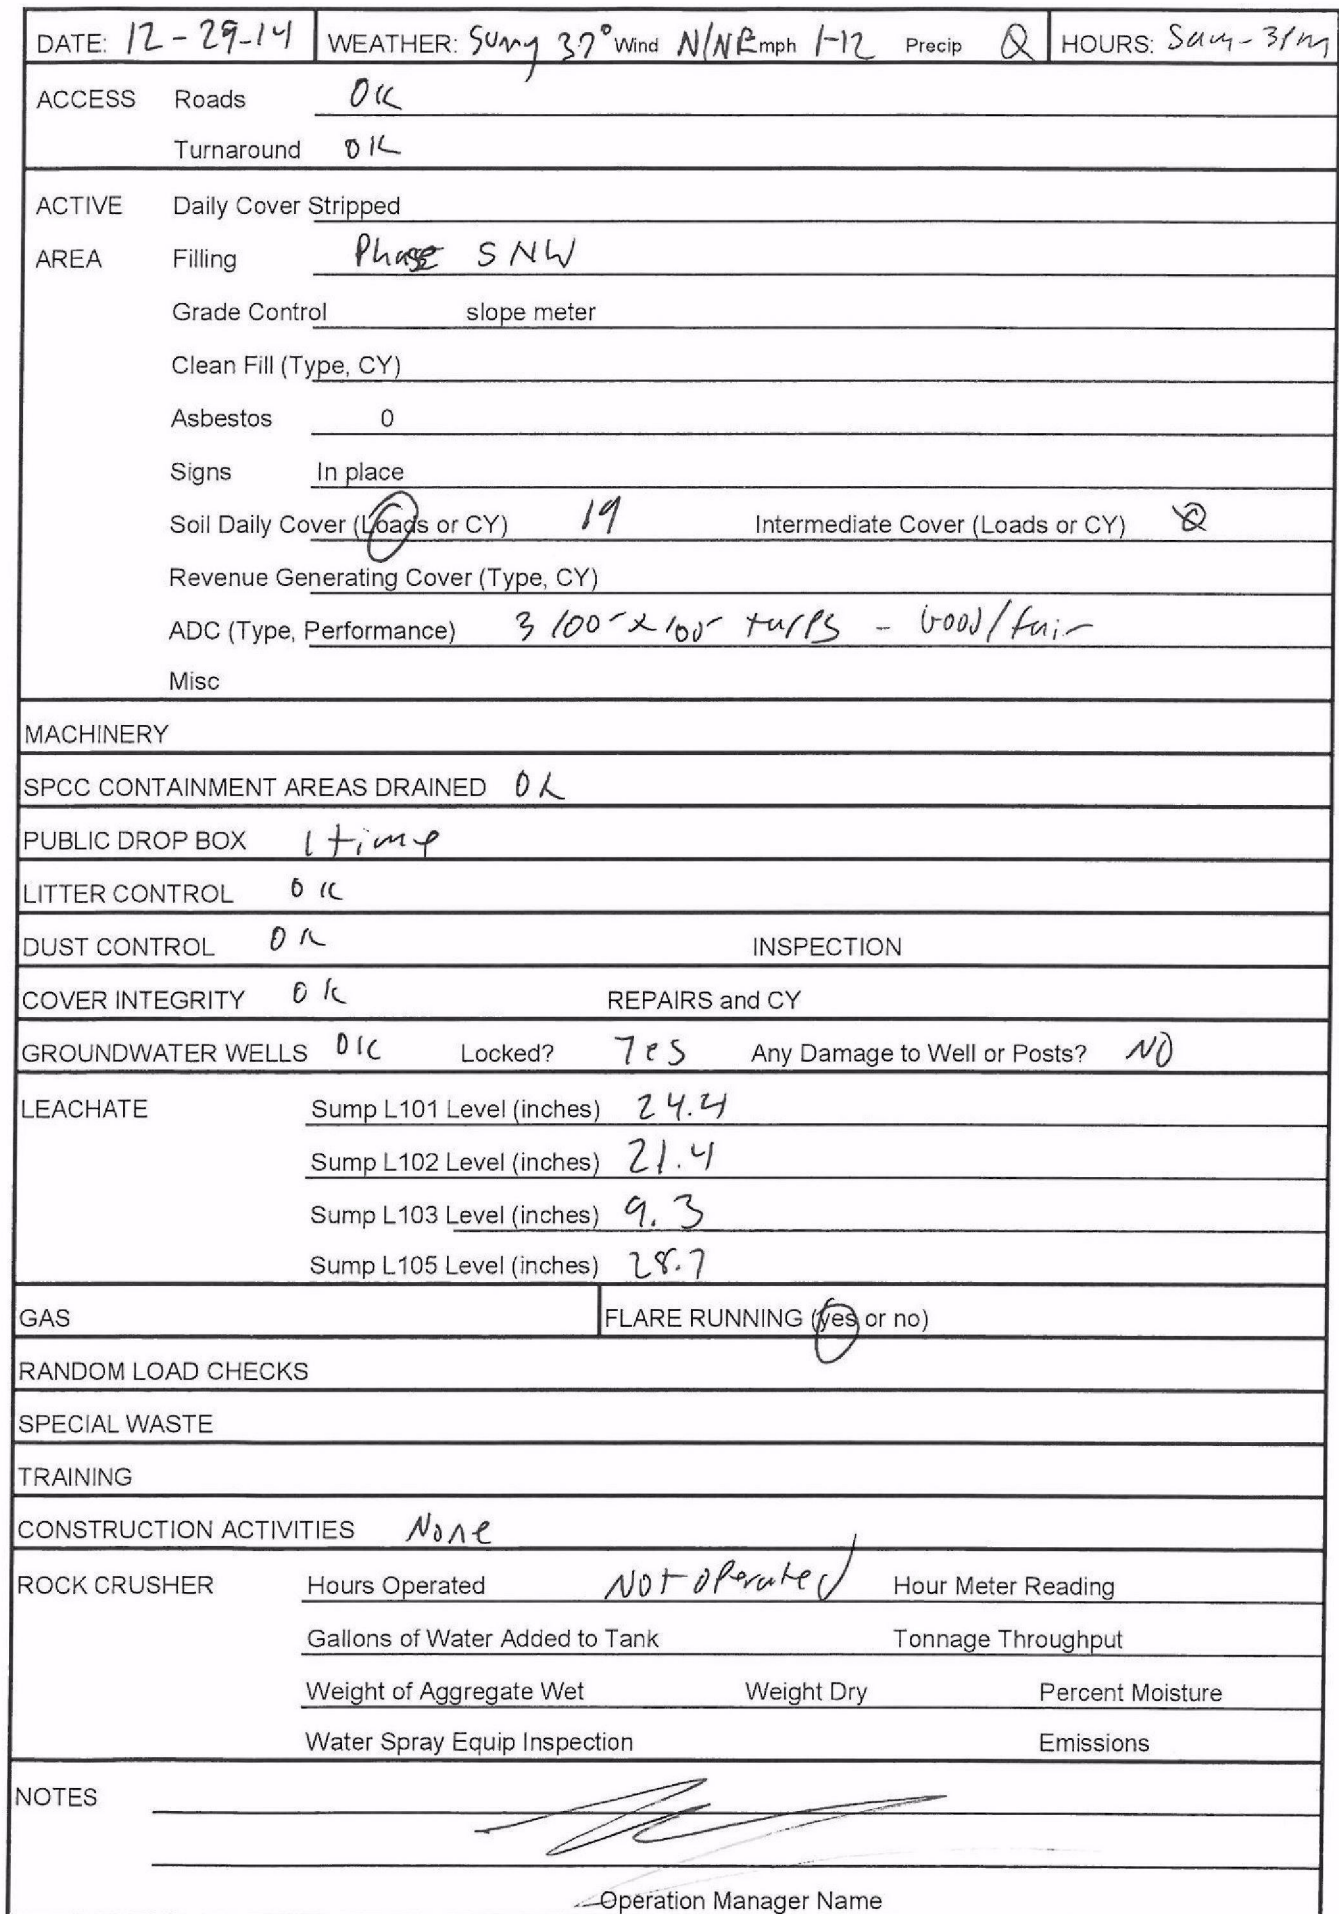 DATE: 12-29-14 WEATHER: Sunny 37° Wind N/NE mph 1-12 Precip 0 HOURS: 5am-3pm
ACCESS Roads OK
Turnaround OK
ACTIVE Daily Cover Stripped
AREA Filling Phase 5 NW
Grade Control slope meter
Clean Fill (Type, CY)
Asbestos 0
Signs In place
Soil Daily Cover (Loads or CY) 19 Intermediate Cover (Loads or CY) 0
Revenue Generating Cover (Type, CY)
ADC (Type, Performance) 3 100' x 100' tarps - Good/fair
Misc
MACHINERY
SPCC CONTAINMENT AREAS DRAINED OK
PUBLIC DROP BOX 1 time
LITTER CONTROL OK
DUST CONTROL OK INSPECTION
COVER INTEGRITY OK REPAIRS and CY
GROUNDWATER WELLS OK Locked? Yes Any Damage to Well or Posts? NO
LEACHATE Sump L101 Level (inches) 24.4
Sump L102 Level (inches) 21.4
Sump L103 Level (inches) 9.3
Sump L105 Level (inches) 28.7
GAS FLARE RUNNING (yes or no)
RANDOM LOAD CHECKS
SPECIAL WASTE
TRAINING
CONSTRUCTION ACTIVITIES None
ROCK CRUSHER Hours Operated Not operated Hour Meter Reading
Gallons of Water Added to Tank Tonnage Throughput
Weight of Aggregate Wet Weight Dry Percent Moisture
Water Spray Equip Inspection Emissions
NOTES
Operation Manager Name